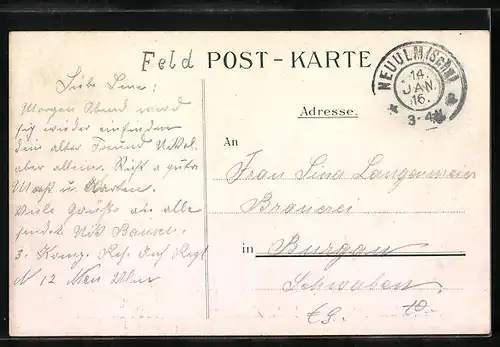 Feld POST-KARTE
NEUULM (Schw)
14.
JAN.
16.
3-4N
Adresse.
Liebe Lina!
Morgen Abend wird
sich wieder einfinden
dein alter Freund Nikol.
aber allein. Richt a gute
Maß u. Karten.
Viele Grüße an alle
sendet Nik
3. Komp. Res. Inf. Regt
N 12 Neu Ulm
An
Frau Lina Langenmeier
Brauerei
in Burgau
Schwaben.